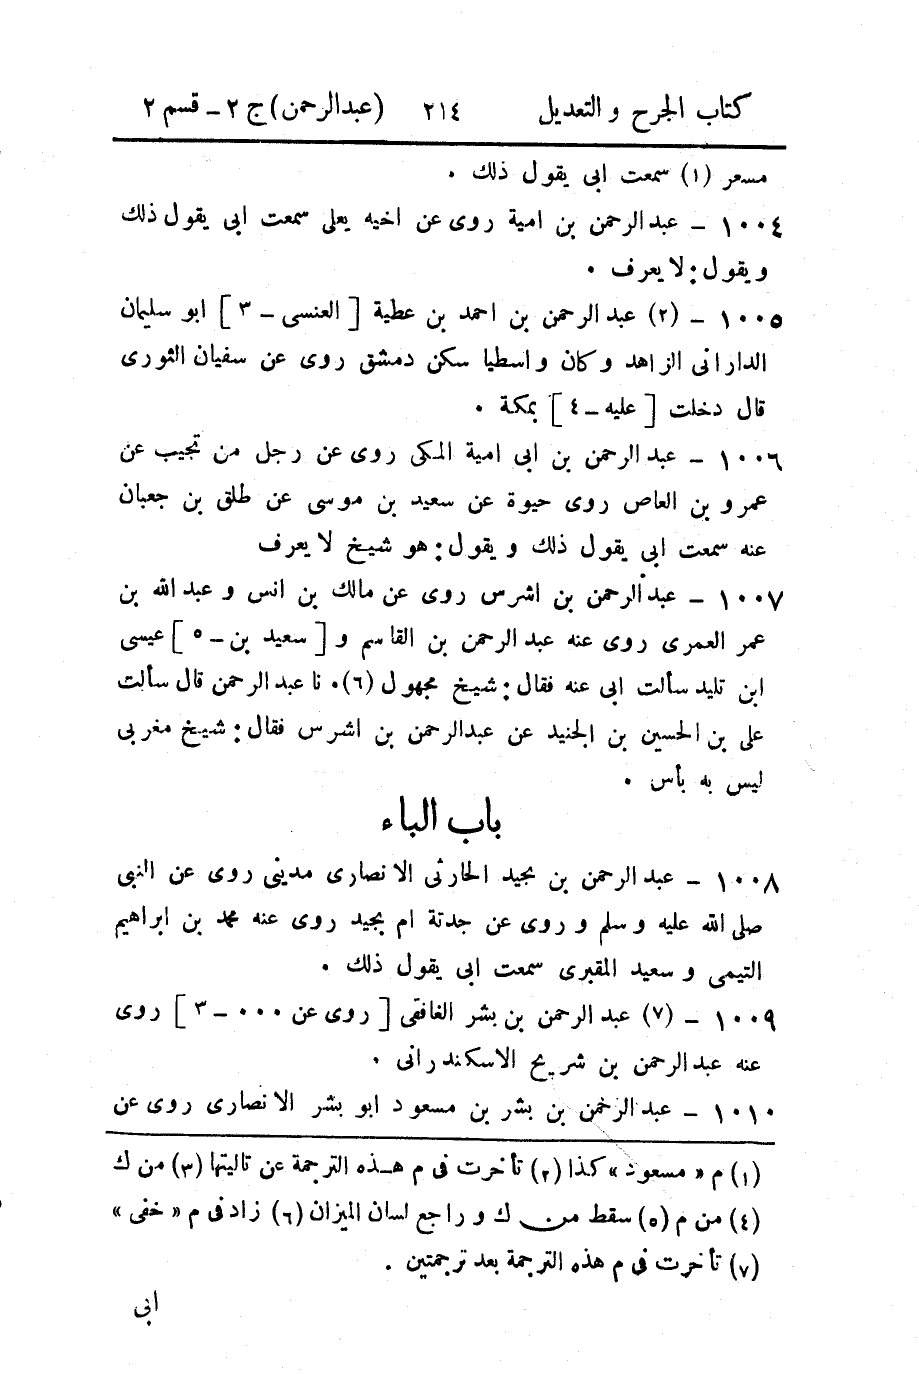 كتاب الجرح و التعديل ٢١٤ (عبدالرحمن) ج ٢ ـ قسم ٢
مسعر (١) سمعت ابى يقول ذلك .
١٠٠٤ ـ عبد الرحمن بن امية روى عن اخيه يعلى سمعت ابى يقول ذلك
و يقول: لا يعرف .
١٠٠٥ ـ (٢) عبد الرحمن بن احمد بن عطية [ العنسى ـ ٣ ] ابو سليمان
الدارانى الزاهد وكان واسطيا سكن دمشق روى عن سفيان الثورى
قال دخلت [ عليه ـ ٤ ] بمكة .
١٠٠٦ ـ عبد الرحمن بن ابى امية المكى روى عن رجل من تجيب عن
عمرو بن العاص روى حيوة عن سعيد بن موسى عن طلق بن جعبان
عنه سمعت ابى يقول ذلك و يقول: هو شيخ لا يعرف
١٠٠٧ ـ عبد الرحمن بن اشرس روى عن مالك بن انس و عبد الله بن
عمر العمرى روى عنه عبد الرحمن بن القاسم و [ سعيد بن ـ ٥ ] عيسى
ابن تليد سألت ابى عنه فقال: شيخ مجهول (٦). نا عبد الرحمن قال سألت
على بن الحسين بن الجنيد عن عبدالرحمن بن اشرس فقال: شيخ مغربى
ليس به بأس .
باب الباء
١٠٠٨ ـ عبد الرحمن بن بجيد الحارثى الانصارى مدينى روى عن النبى
صلى الله عليه و سلم و روى عن جدتة ام بجيد روى عنه محمد بن ابراهيم
التيمى و سعيد المقبرى سمعت ابى يقول ذلك .
١٠٠٩ ـ (٧) عبد الرحمن بن بشر الغافقى [ روى عن ٠٠٠ ـ ٣ ] روى
عنه عبدالرحمن بن شريح الاسكندرانى .
١٠١٠ ـ عبد الرحمن بن بشر بن مسعود ابو بشر الانصارى روى عن
(١) م « مسعود » كذا (٢) تأخرت فى م هـذه الترجمة عن تاليتها (٣) من ك
(٤) من م (٥) سقط من ك و راجع لسان الميزان (٦) زاد فى م « خفى »
(٧) تأخرت فى م هذه الترجمة بعد ترجمتين .
ابى